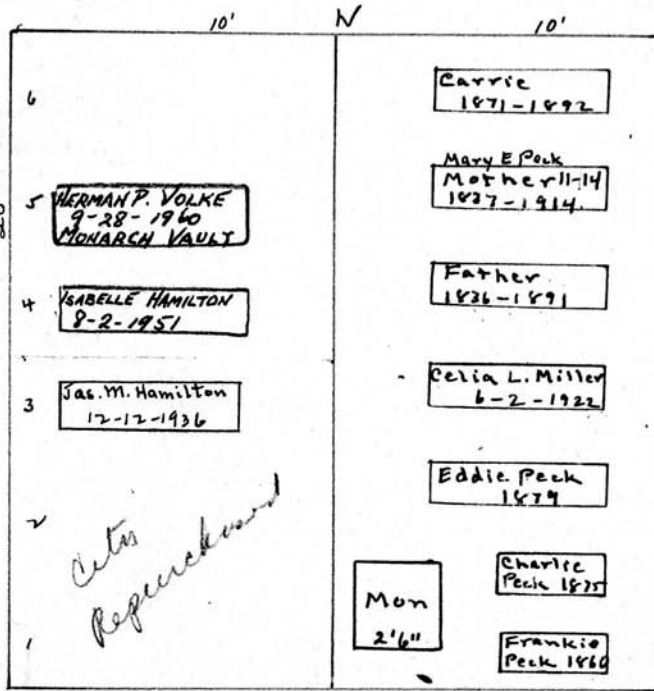 10' N 10'
6
5
HERMAN P. VOLKE
9-28-1960
MONARCH VAULT
4
ISABELLE HAMILTON
8-2-1951
3
Jas. M. Hamilton
12-12-1936
2
Repurchased
1
Carrie
1871-1892
Mary E Peck
Mother 11-14
1837-1914
Father
1836-1891
Celia L. Miller
6-2-1922
Eddie Peck
1879
Charlie
Peck 1875
Mon
2'6"
Frankie
Peck 1860